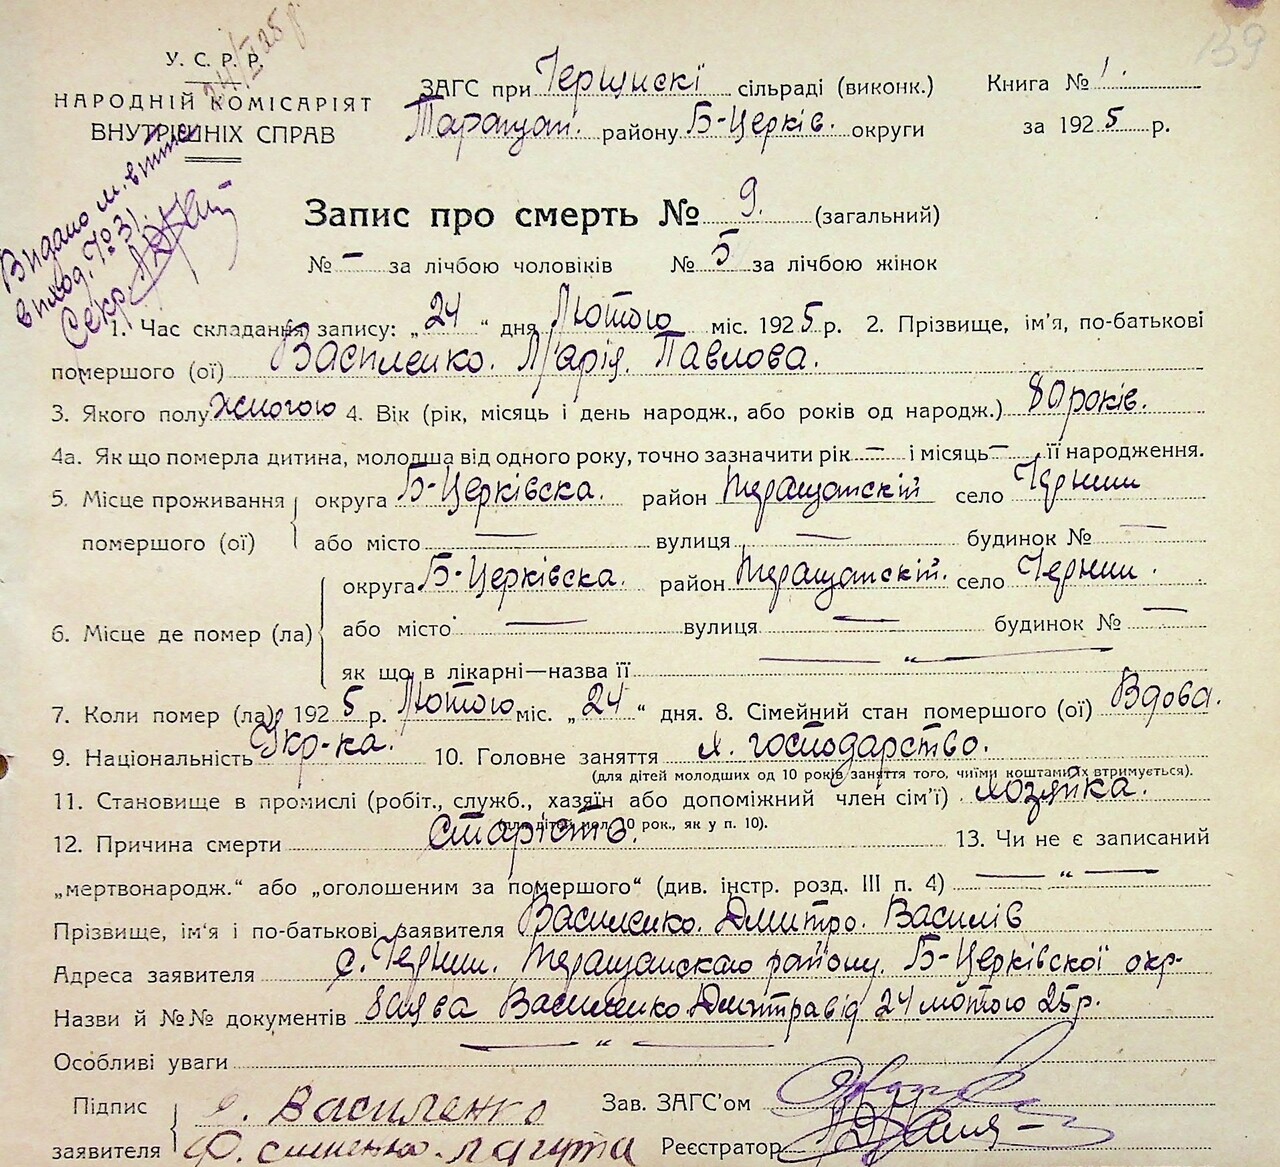 139
24/II 25 р.
У. С. Р. Р.
НАРОДНІЙ КОМІСАРІЯТ
ВНУТРІШНІХ СПРАВ
ЗАГС при сільраді (виконк.) Книга № 1.
Таращан. району Б-Церків. округи за 1925 р.
Видано
№ 31
Секр.
Запис про смерть № 9. (загальний)
№ — за лічбою чоловіків № 5 за лічбою жінок
1. Час складання запису: „24“ дня Лютого міс. 1925 р. 2. Прізвище, ім'я, по-батькові
помершого (ої) Василенко. Марія. Павлова.
3. Якого полу жіногою 4. Вік (рік, місяць і день народж., або років од народж.) 80 років.
4а. Як що померла дитина, молодша від одного року, точно зазначити рік — і місяць — її народження.
5. Місце проживання помершого (ої) округа Б-Церківска. район Таращанскій село Черкии
або місто — вулиця — будинок № —
6. Місце де помер (ла) округа Б-Церківска. район Таращанскій. село
або місто — вулиця — будинок № —
як що в лікарні—назва її — „ —
7. Коли помер (ла) 1925 р. Лютого міс. „24“ дня. 8. Сімейний стан помершого (ої) Вдова.
9. Національність Укр-ка. 10. Головне заняття господарство.
(для дітей молодших од 10 років заняття того, чиїми коштами їх втримується).
11. Становище в промислі (робіт., служб., хазяїн або допоміжний член сім'ї) хозяйка.
(для дітей мол. 10 рок., як у п. 10).
12. Причина смерти старість. 13. Чи не є записаний
„мертвонародж.“ або „оголошеним за помершого“ (див. інстр. розд. III п. 4) — „ —
Прізвище, ім'я і по-батькові заявителя Василенко. Дмитро. Василів
Адреса заявителя с. Таращанскаю району. Б-Церківскої окр-
Назви й №№ документів заява Василенко Дмитра від 24 лютого 25 р.
Особливі уваги — „ —
Підпис заявителя Василенко Зав. ЗАГС'ом
Реєстратор